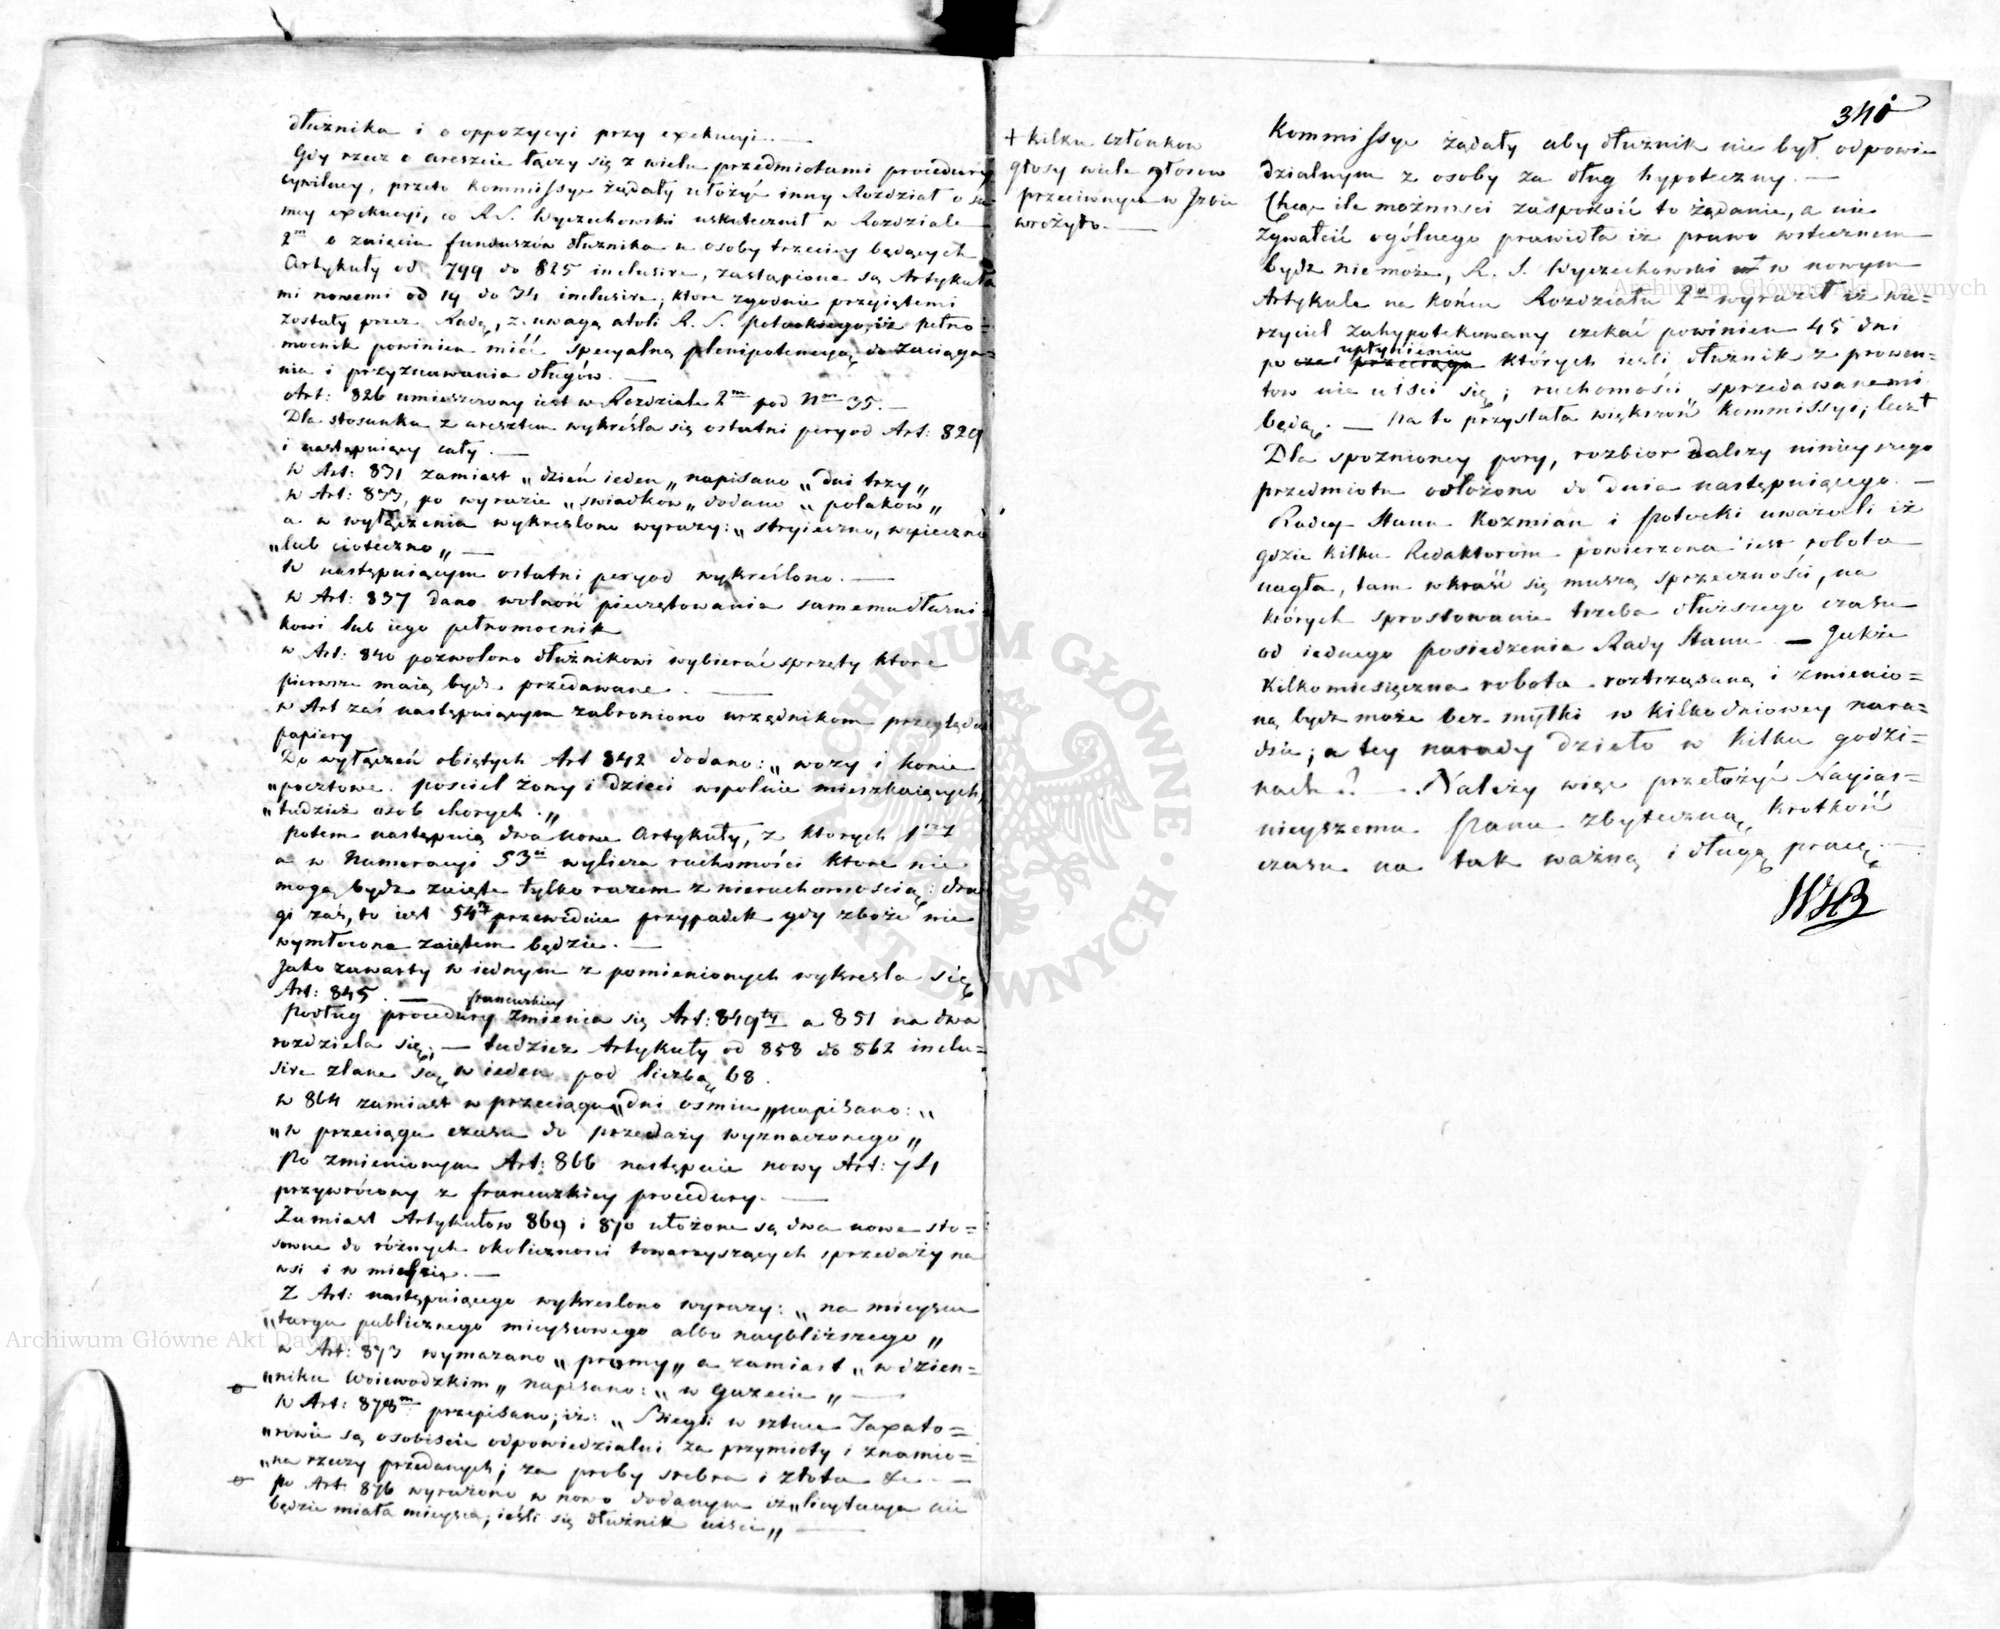 dłużnika i o oppozycyi przy exekucyi. —
Gdy rzecz o areszcie łączy się z wielu przedmiotami procedury
cywilney, przeto Kommissye żądały ułożyć inny Rozdział o sa=
mey exekucyi, co R. S. Wyczechowski uskutecznił w Rozdziale
2m o zaięciu funduszów dłużnika u osoby trzeciey będących
Artykuły od 799 do 825 inclusive, zastąpione są Artykuła
mi nowemi od 19 do 34 inclusive; które zgodnie przyiętemi
zostały przez Radę, z uwagą atoli R. S. Potockiego, iż pełno=
mocnik powinien mieć specyalną plenipotencyą do zaciąga=
nia i przyznawania długów. —
Art: 826 umieszczony iest w Rozdziale 2m pod Nm 35. —
Dla stosunku z aresztem wykreśla się ostatni peryod Art: 829
i następuiący cały. —
W Art: 831 zamiast „dzień ieden„ napisano „dni trzy„
w Art: 833, po wyrazie „swiadków„ dodano „polaków„
a w wyłączenia wykreślono wyrazy: „stryieczno, wuieczno
„lub cioteczno„ —
W następuiącym ostatni peryod wykreślono. —
w Art: 837 dano wolność pieczętowania samemu dłużni
kowi lub iego pełnomocnik
w Art: 840 pozwolono dłużnikowi wybierać sprzęty które
pierwsze maią bydź przedawane. —
w Art zaś następuiącym zabroniono urzędnikom przeglądać
papiery
Do wyłączeń obiętych Art 842 dodano: „wozy i konie
„pocztowe. pościel żony i dzieci wspólnie mieszkaiących,
„tudzież osób chorych.„
Potem następuią dwa nowe Artykuły, z których 1szy
a w Numeracyi 53ci wylicza ruchomości które nie
mogą bydź zaięte tylko razem z nieruchomością: dru
gi zaś, to iest 54ty przewiduie przypadek gdy zboże nie
wymłócone zaiętem będzie. —
Jako zawarty w iednym z pomienionych wykreśla się
Art: 845. —
francuzkiey
Podług procedury zmienia się Art: 849ty a 851 na dwa
rozdziela się; — tudzież Artykuły od 858 do 862 inclu=
sive zlane są w ieden pod liczbą 68.
w 864 zamiast w przeciągu „dni ośmiu„ napisano: „
„w przeciągu czasu do przedaży wyznaczonego„
Po zmienionym Art: 866 następuie nowy Art: 71
przywrócony z francuzkiey procedury. —
Zamiast Artykułów 869 i 870 ułożone są dwa nowe sto=
sowne do różnych okoliczności towarzyszących sprzedaży na
wsi i w mieście. —
Z Art: następuiącego wykreślono wyrazy: „na mieyscu
„targu publicznego mieyscowego albo naybliższego„
w Art: 873 wymazano „promy„ a zamiast „w dzien=
„niku Woiewodzkim„ napisano: „w gazecie„ —
W Art: 878m przepisano; iż: „Biegli w sztuce Taxato=
„rowie są osobiście odpowiedzialni za przymioty i znamio=
„na rzeczy przedanych; za proby srebra i złota &c —
po Art: 876 wyrażono w nowo dodanym iż „licytacya nie
będzie miała mieysca, ieśli się dłużnik uiści„ —
+ kilku członków
głosy wiele głosów
przeciwnych w Izbie
wrożyło. —
340
Kommissye żądały aby dłużnik nie był odpowie
dzialnym z osoby za dług hypoteczny. —
Chcąc ile możności zaspokoić to żądanie, a nie
zgwałcić ogólnego prawidła iż prawo wstecznem
bydź nie może, R. S. Wyczechowski w nowym
Artykule na końcu Rozdziału 2go wyraził iż wie=
rzyciel zahypotekowany czekać powinien 45 dni
upłynieniu
po czas przeciągu których ieśli dłużnik z prowen=
tów nie uiści się; ruchomości sprzedawanemi
będą. — Na to przystała większość Kommissyi; lecz+
Dla spoznioney pory, rozbior dalszy ninieyszego
przedmiotu odłożono do dnia następuiącego. —
Radcy Stanu Kozmian i Potocki uważali iż
gdzie kilku Redaktorom powierzona iest robota
nagła, tam wkraść się muszą sprzeczności, na
których sprostowanie trzeba dłuższego czasu
od iednego posiedzenia Rady Stanu — Jakże
kilkomiesięczna robota roztrząsaną i zmienio=
ną bydź może bez myłki w kilkodniowey nara=
dzie; a tey narady dzieło w kilku godzi=
nach? — Należy więc przełożyć Nayias=
nieyszemu Panu zbyteczną krotkość
czasu na tak ważną i długą pracę. —